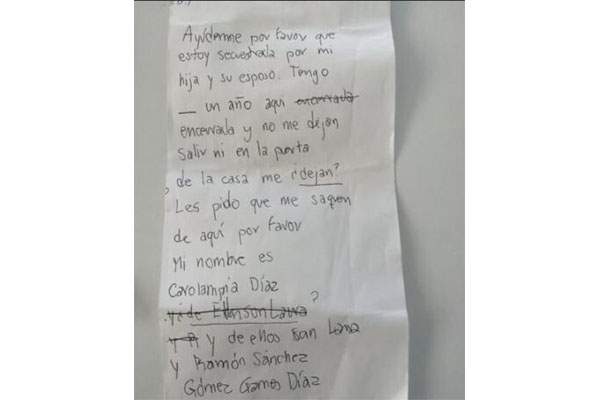 Ayúdenme por favor que
estoy secuestrada por mi
hija y su esposo. Tengo
_ un año aquí encerrada
encerrada y no me dejan
Salir ni en la puerta
, de la casa me ¿dejan?
Les pido que me saquen
de aquí por favor
Mi nombre es
Carolampia Díaz
de Ellan son Laura ?
y de ellos son Lana
y Ramón Sánchez
Gómez Gomes Díaz